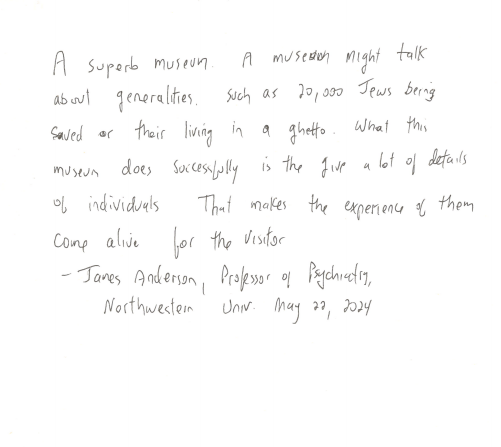 A superb museum. A museum might talk
about generalities. Such as 20,000 Jews being
saved or their living in a ghetto. What this
museum does successfully is the give a lot of details
of individuals That makes the experience of them
come alive for the visitor
- James Anderson, Professor of Psychiatry,
Northwestern Univ. May 22, 2024